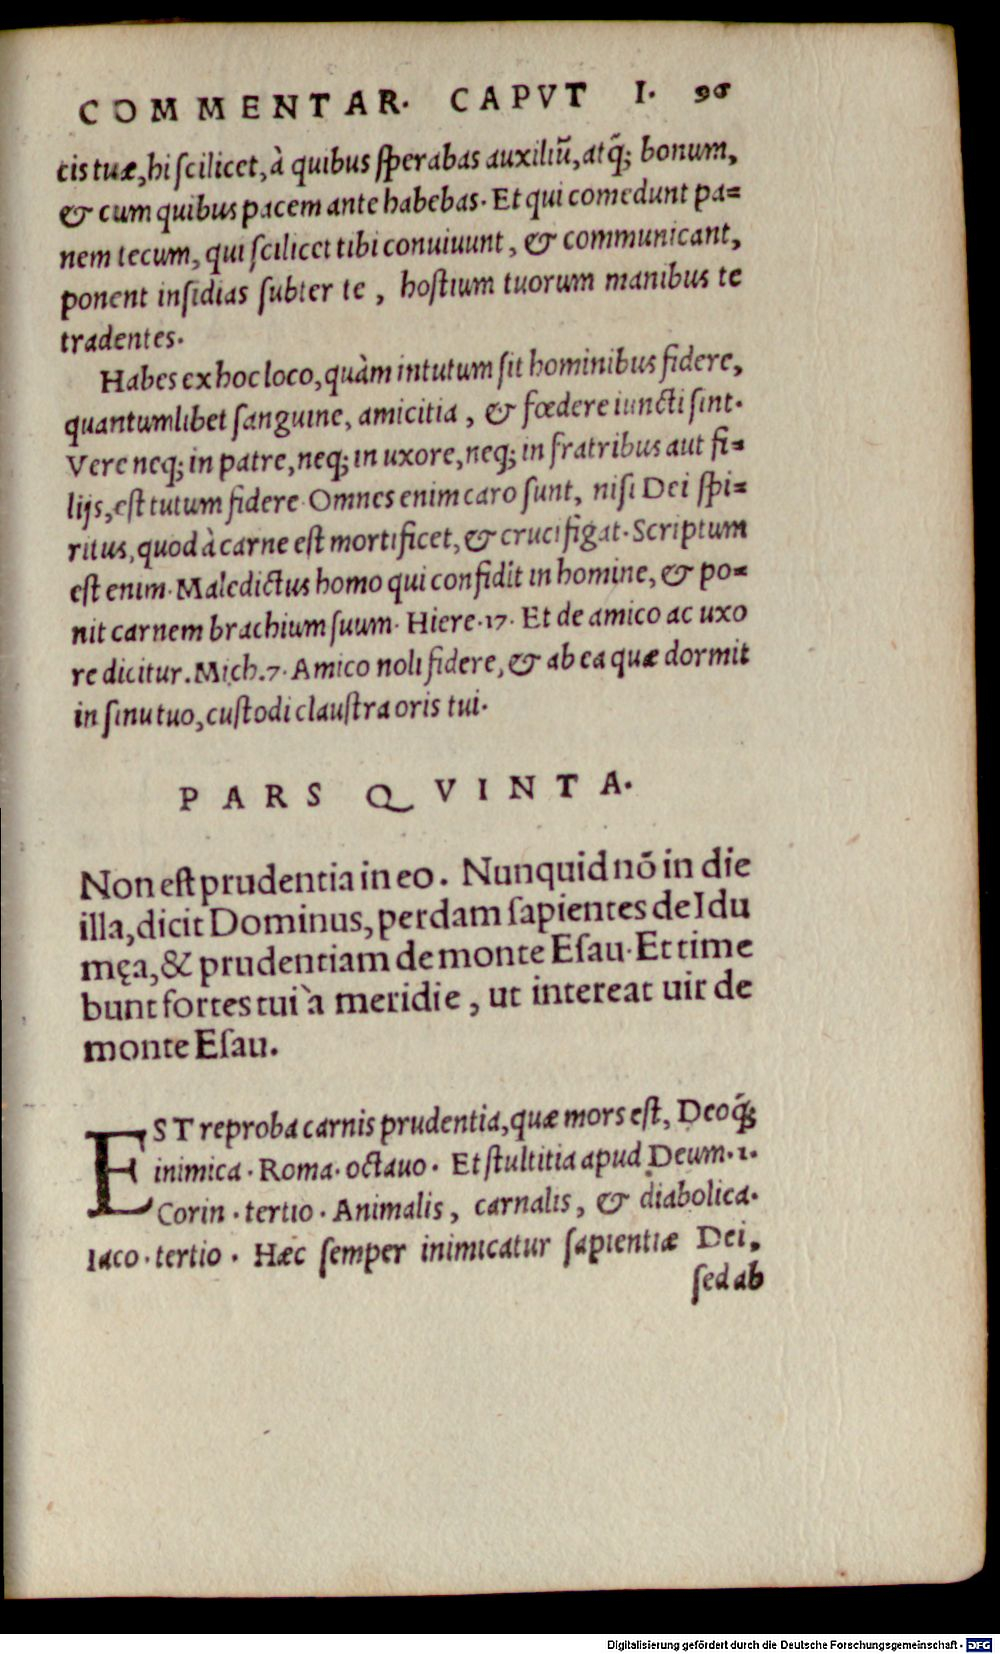 COMMENTAR. CAPVT I. 96
cis tuæ, hi ſcilicet, à quibus ſperabas auxiliũ, atq̃; bonum,
& cum quibus pacem ante habebas. Et qui comedunt pa=
nem tecum, qui ſcilicet tibi conuiuunt, & communicant,
ponent inſidias ſubter te, hoſtium tuorum manibus te
tradentes.
Habes ex hoc loco, quàm intutum ſit hominibus fidere,
quantumlibet ſanguine, amicitia, & fœdere iuncti ſint.
Vere neq; in patre, neq; in uxore, neq; in fratribus aut fi=
lijs, eſt tutum fidere. Omnes enim caro ſunt, niſi Dei ſpi=
ritus, quod à carne eſt mortificet, & crucifigat. Scriptum
eſt enim. Maledictus homo qui confidit in homine, & po=
nit carnem brachium ſuum. Hiere. 17. Et de amico ac uxo
re dicitur. Mich. 7. Amico noli fidere, & ab ea quæ dormit
in ſinu tuo, cuſtodi clauſtra oris tui.
PARS QVINTA.
Non eſt prudentia in eo. Nunquid nõ in die
illa, dicit Dominus, perdam ſapientes de Idu
męa, & prudentiam de monte Eſau. Et time
bunt fortes tui à meridie, ut intereat uir de
monte Eſau.
EST reproba carnis prudentia, quæ mors eſt, Deoq̃;
inimica. Roma. octauo. Et ſtultitia apud Deum. 1.
Corin. tertio. Animalis, carnalis, & diabolica.
Iaco. tertio. Hæc ſemper inimicatur ſapientiæ Dei,
ſed ab
Digitalisierung gefördert durch die Deutsche Forschungsgemeinschaft - DFG